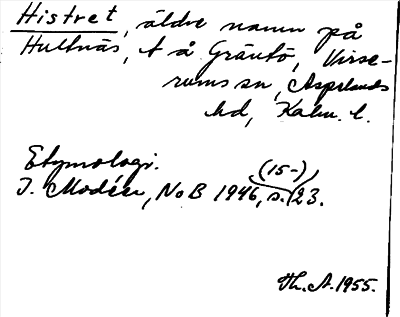 Histret, äldre namn på
Hultnäs, t å Gränö, Virse-
rums sn, Aspelands
hd, Kalm. l.
Etymologi.
(15-)
I. Modéer, NoB 1946, s. 23.
Th. A. 1955.